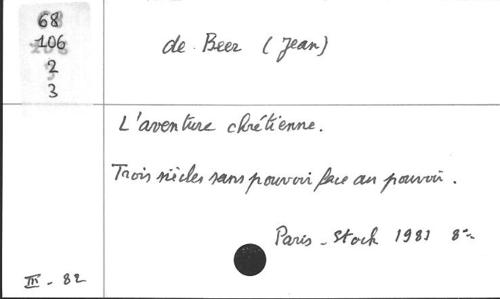 68
106
2
3
de Beer (Jean)
L'aventure chrétienne.
Trois siècles sans pouvoir face au pouvoir.
Paris - Stock 1981 8°
III - 82